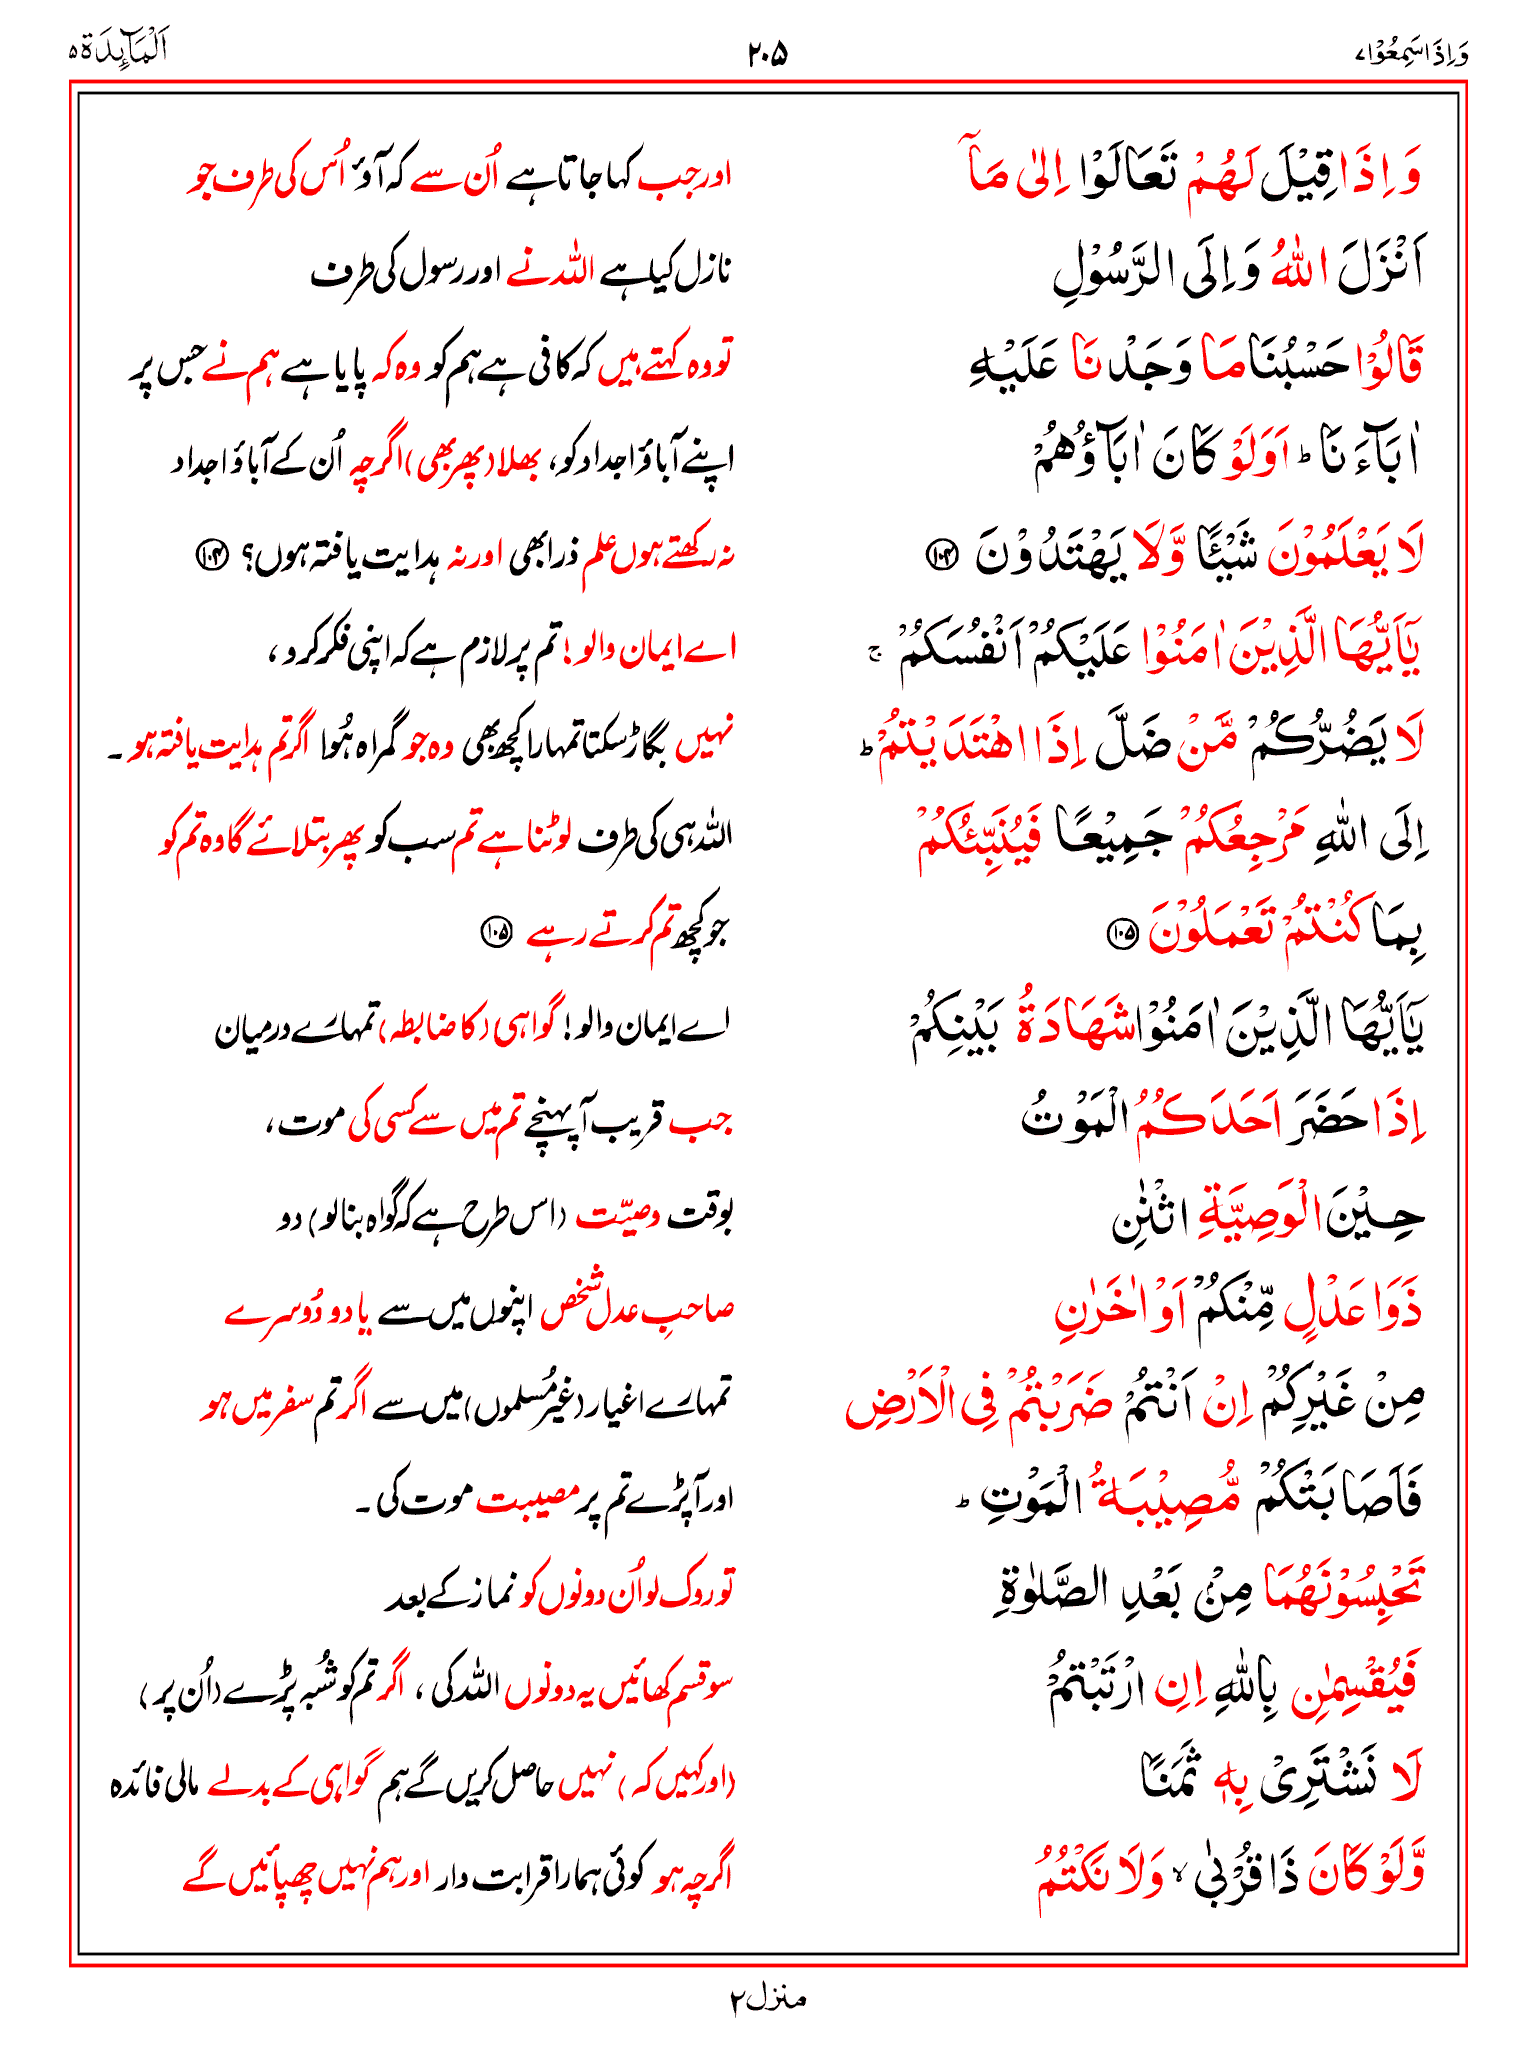 وَاِذَا سَمِعُوْا ۷
۲۰۵
اَلْمَآئِدَة ۵
وَ اِذَا قِيْلَ لَهُمْ تَعَالَوْا اِلٰى مَآ
اور جب کہا جاتا ہے اُن سے کہ آؤ اُس کی طرف جو
اَنْزَلَ اللّٰهُ وَ اِلَى الرَّسُوْلِ
نازل کیا ہے اللہ نے اور رسول کی طرف
قَالُوْا حَسْبُنَا مَا وَجَدْنَا عَلَيْهِ
تو وہ کہتے ہیں کہ کافی ہے ہم کو وہ کہ پایا ہے ہم نے جس پر
اٰبَآءَنَا ؕ اَوَلَوْ كَانَ اٰبَآؤُهُمْ
اپنے آباؤ اجداد کو، بھلا (پھر بھی) اگرچہ اُن کے آباؤ اجداد
لَا يَعْلَمُوْنَ شَيْـًٔا وَّلَا يَهْتَدُوْنَ ۱۰۴
نہ رکھتے ہوں علم ذرا بھی اور نہ ہدایت یافتہ ہوں؟ ۱۰۴
يٰۤاَيُّهَا الَّذِيْنَ اٰمَنُوْا عَلَيْكُمْ اَنْفُسَكُمْ ۚ
اے ایمان والو! تم پر لازم ہے کہ اپنی فکر کرو،
لَا يَضُرُّكُمْ مَّنْ ضَلَّ اِذَا اهْتَدَيْتُمْ ؕ
نہیں بگاڑ سکتا تمہارا کچھ بھی وہ جو گمراہ ہُوا اگر تم ہدایت یافتہ ہو۔
اِلَى اللّٰهِ مَرْجِعُكُمْ جَمِيْعًا فَيُنَبِّئُكُمْ
اللہ ہی کی طرف لوٹنا ہے تم سب کو پھر بتلائے گا وہ تم کو
بِمَا كُنْتُمْ تَعْمَلُوْنَ ۱۰۵
جو کچھ تم کرتے رہے ۱۰۵
يٰۤاَيُّهَا الَّذِيْنَ اٰمَنُوْا شَهَادَةُ بَيْنِكُمْ
اے ایمان والو! گواہی (کا ضابطہ) تمہارے درمیان
اِذَا حَضَرَ اَحَدَكُمُ الْمَوْتُ
جب قریب آ پہنچے تم میں سے کسی کی موت،
حِيْنَ الْوَصِيَّةِ اثْنٰنِ
بوقت وصیّت (اس طرح ہے کہ گواہ بنا لو) دو
ذَوَا عَدْلٍ مِّنْكُمْ اَوْ اٰخَرٰنِ
صاحبِ عدل شخص اپنوں میں سے یا دو دُوسرے
مِنْ غَيْرِكُمْ اِنْ اَنْتُمْ ضَرَبْتُمْ فِى الْاَرْضِ
تمہارے اغیار (غیر مُسلموں) میں سے اگر تم سفر میں ہو
فَاَصَابَتْكُمْ مُّصِيْبَةُ الْمَوْتِ ؕ
اور آپڑے تم پر مصیبت موت کی۔
تَحْبِسُوْنَهُمَا مِنْۢ بَعْدِ الصَّلٰوةِ
تو روک لو اُن دونوں کو نماز کے بعد
فَيُقْسِمٰنِ بِاللّٰهِ اِنِ ارْتَبْتُمْ
سو قسم کھائیں یہ دونوں اللہ کی، اگر تم کو شُبہ پڑے (اُن پر)
لَا نَشْتَرِىْ بِهٖ ثَمَنًا
(اور کہیں کہ) نہیں حاصل کریں گے ہم گواہی کے بدلے مالی فائدہ
وَّلَوْ كَانَ ذَا قُرْبٰى ۙ وَلَا نَكْتُمُ
اگرچہ ہو کوئی ہمارا قرابت دار اور ہم نہیں چھپائیں گے
منزل ۲